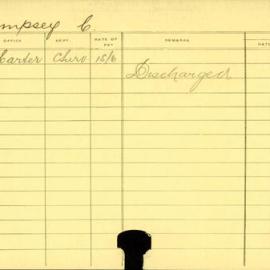 mpsey C.
OFFICE DEPT. RATE OF PAY REMARKS DATE
Carter 15/6 Discharged